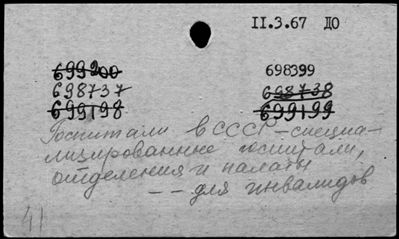 II.3.67 ДО
699200 698399
698737 698738
699198 699199
Госпитали в СССР - специа-
лизированные госпитали,
отделения и палаты
-- для инвалидов
41